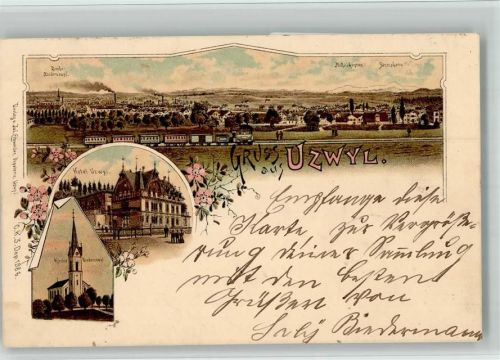 Gruss aus
UZWYL.
Hotel Uzwyl
Kirche Niederuzwyl
Empfange diese
Karte, zur Vergröße-
rung deiner Sammlung
mit den besten
Grüßen von
Biedermann